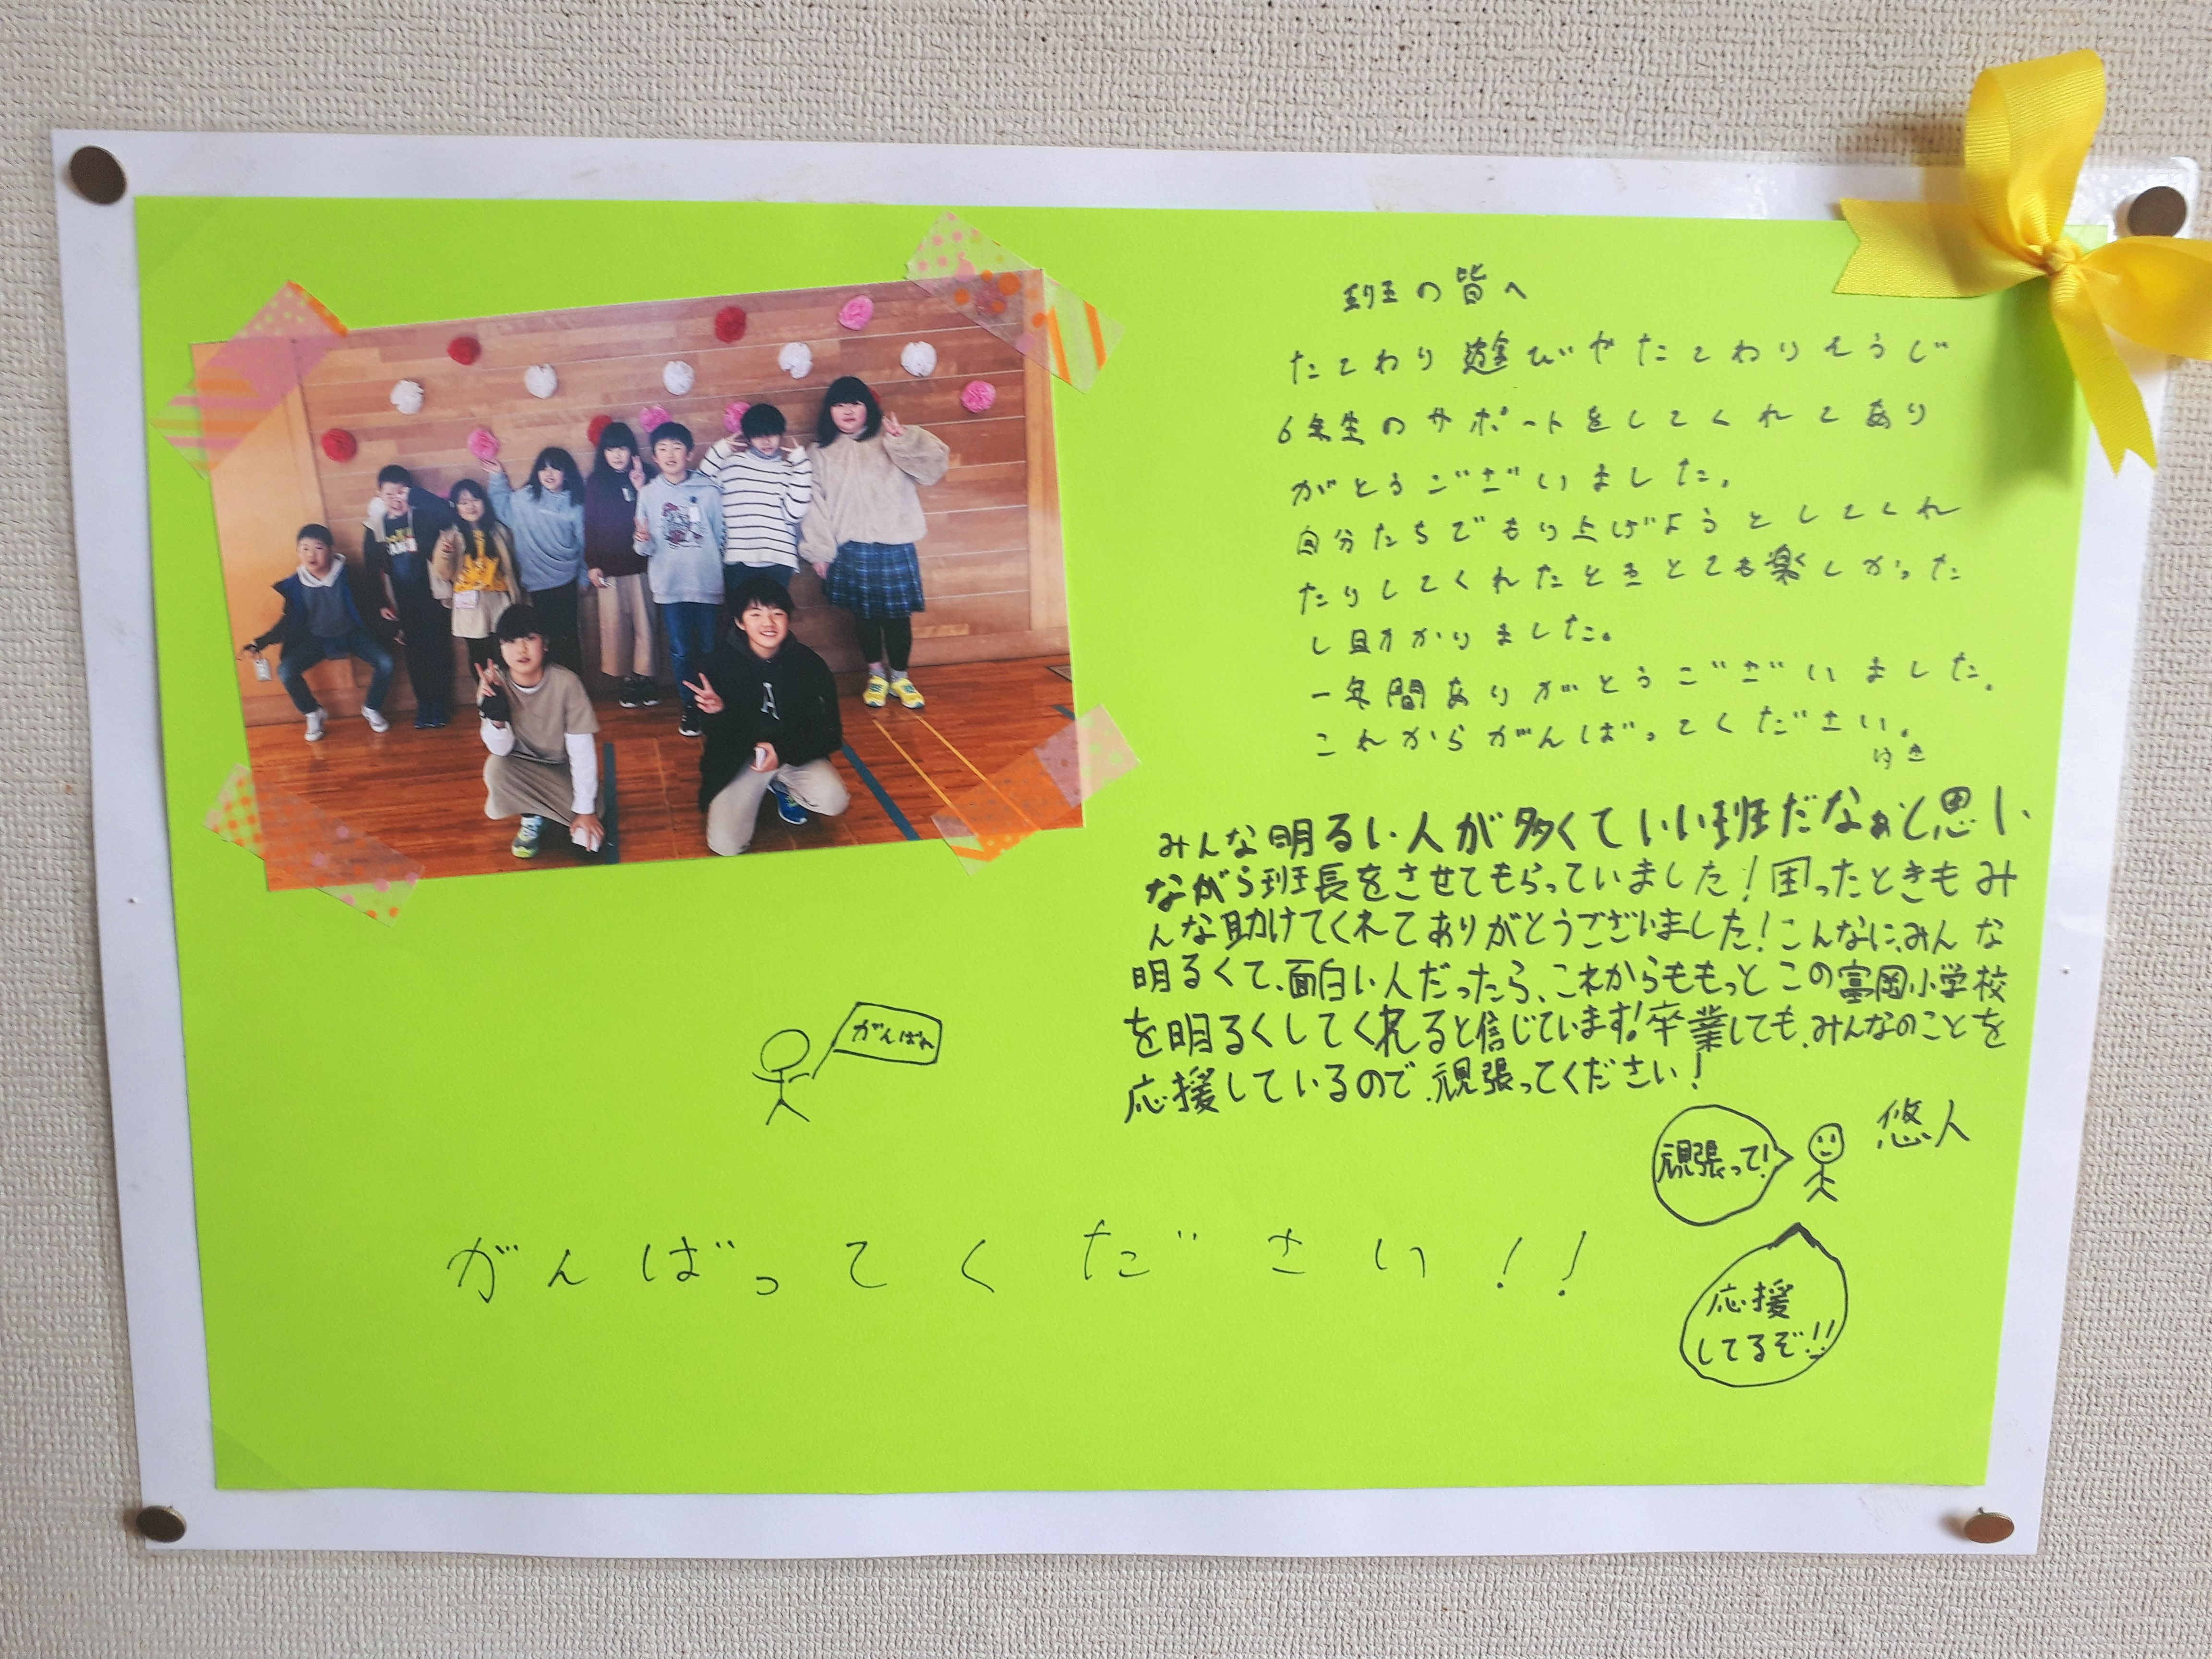 班の皆へ
たてわり遊びやたてわりそうじ
6年生のサポートをしてくれてあり
がとうございました。
自分たちでもり上げようとしてくれ
たりしてくれたときとても楽しかった
し助かりました。
一年間ありがとうございました。
これからがんばってください。
みんな明るい人が多くていい班だなぁと思い
ながら班長をさせてもらっていました！困ったときもみ
んな助けてくれてありがとうございました！こんなに、みんな
明るくて、面白い人だったら、これからももっとこの富岡小学校
を明るくしてくれると信じています！卒業しても、みんなのことを
応援しているので、頑張ってください！
悠人
頑張って！
応援
してるぞ!!
がんばれ
がんばってください！！
A